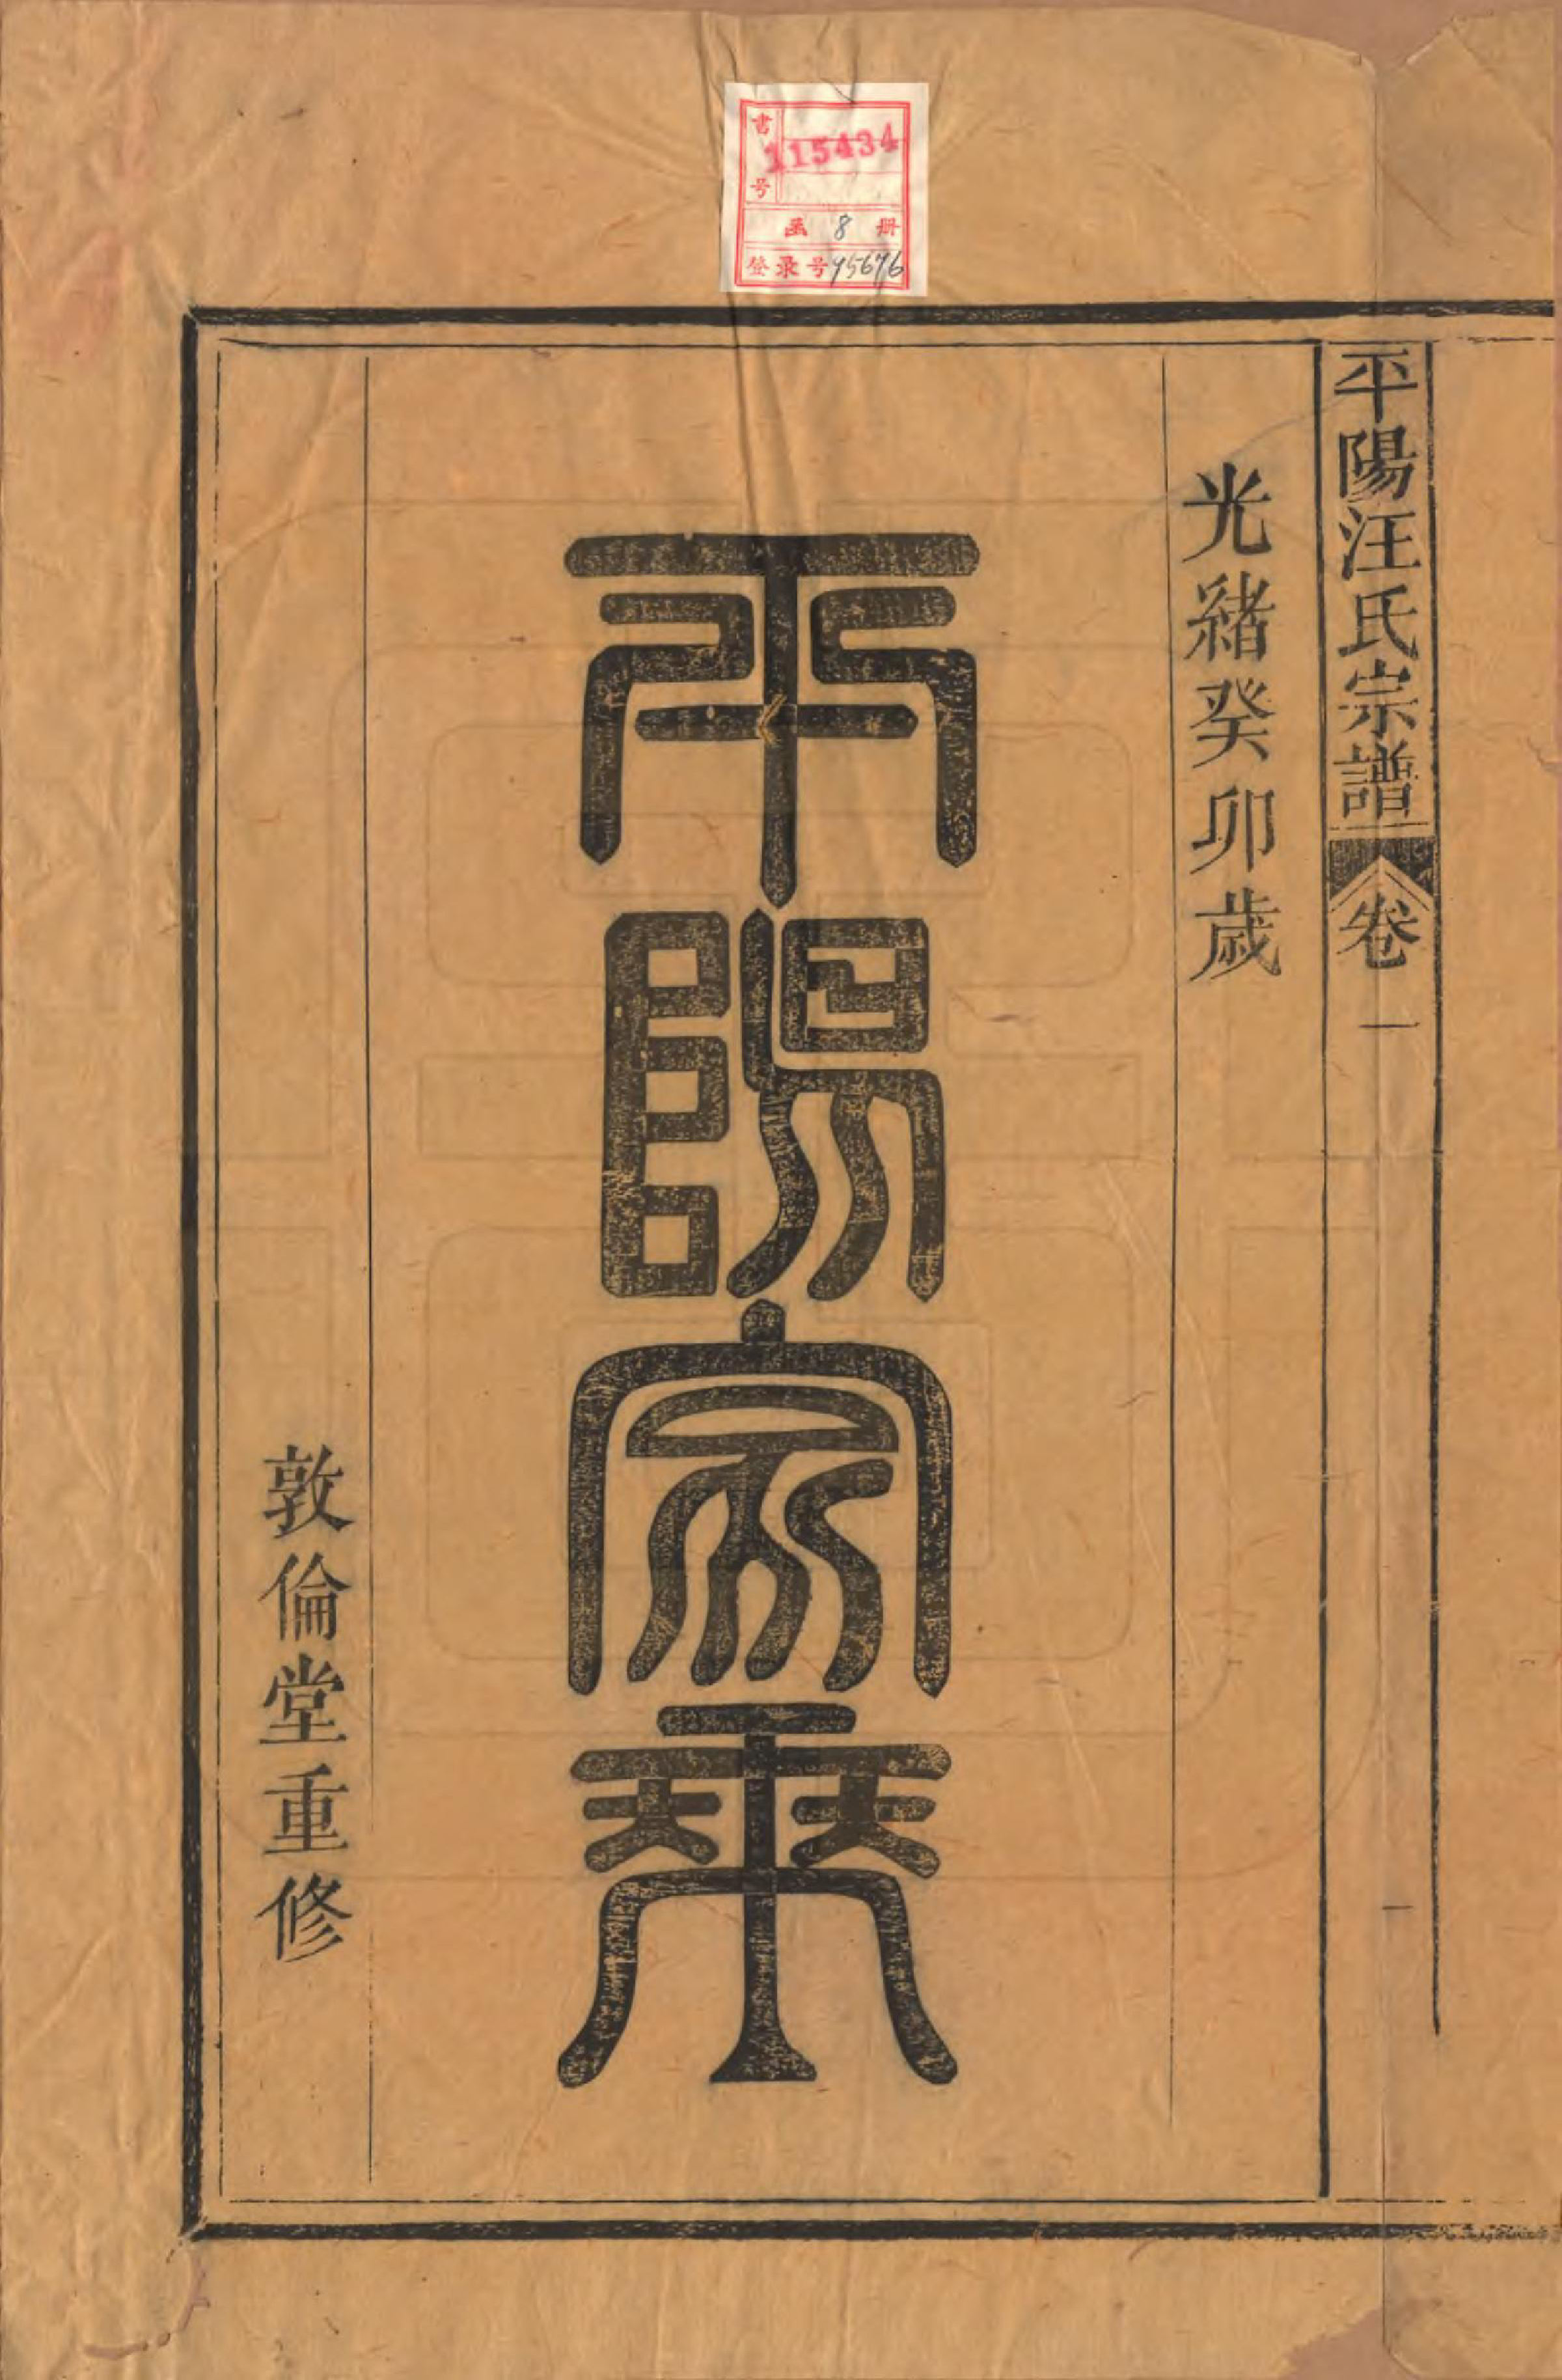 書号 115434
函 8 册
登录号 95676
平陽汪氏宗譜 卷一 一
光緒癸卯歲
平陽家乘
敦倫堂重修